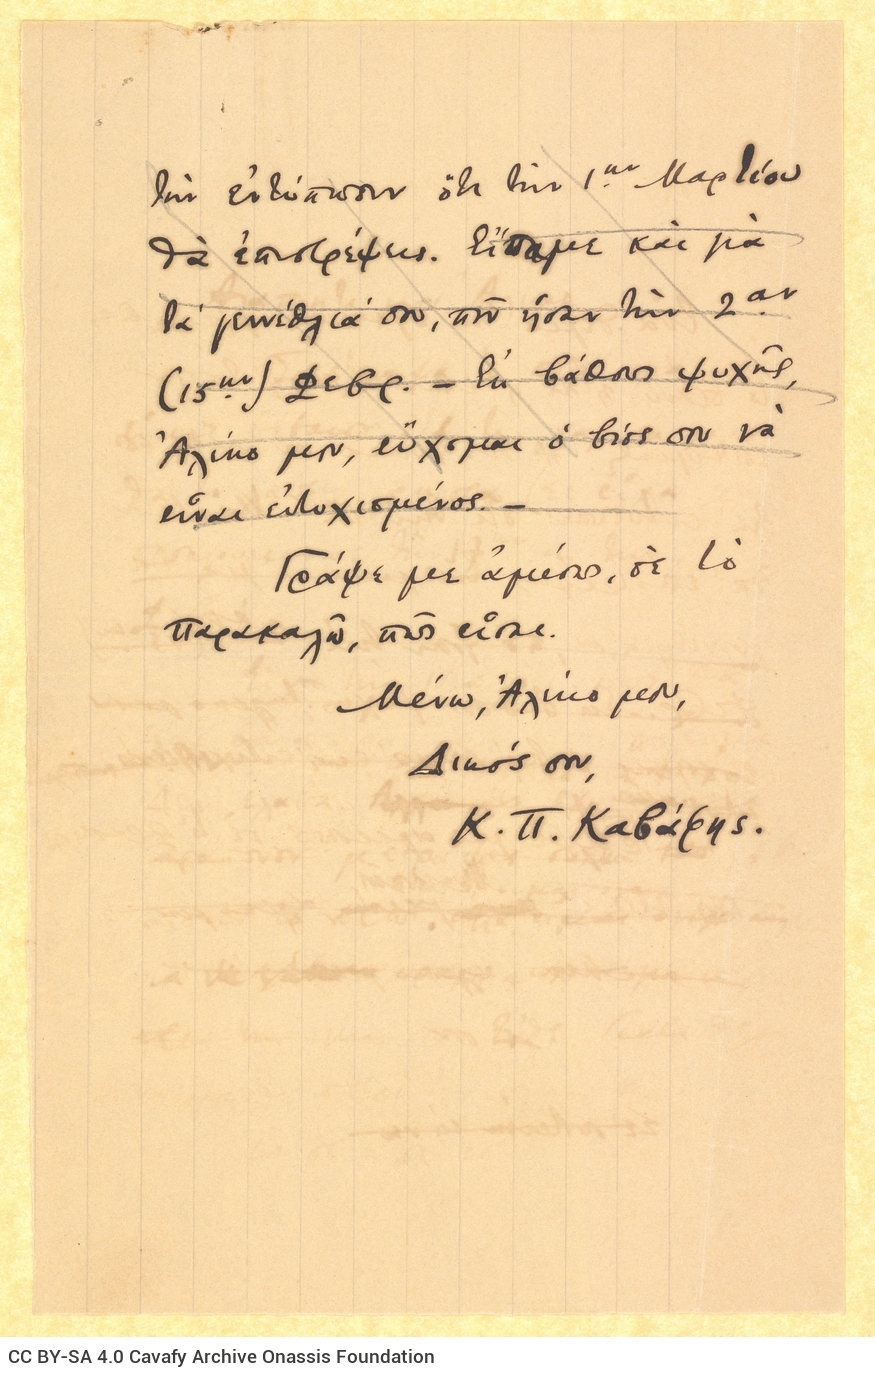 τὴν ἐντύπωσιν ὅτι τὴν 1ην Μαρτίου
θὰ ἐπιστρέψεις. Εἴπαμε καὶ γιὰ
τὰ γεννέθλιά σου, ποῦ ἦσαν τὴν 2αν
(15ην) Φεβρ. — Ἐκ βάθους ψυχῆς,
Ἀλέκο μου, εὔχομαι ὁ βίος σου νὰ
εἶναι εὐτυχισμένος. —
Γράψε με ἀμέσως, σὲ τὸ
παρακαλῶ, πῶς εἶσαι.
Μένω, Ἀλέκο μου,
Δικός σου,
Κ. Π. Καβάφης.
CC BY-SA 4.0 Cavafy Archive Onassis Foundation